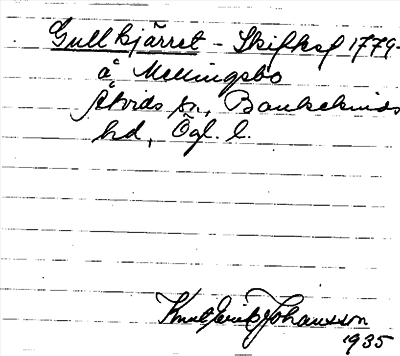 Gullkjärret - Skifksl 1779-
å Mellingsbo
Åtvids sn, Bankekinds
hd, Ögl. l.
Knut Erik Johansson
1935